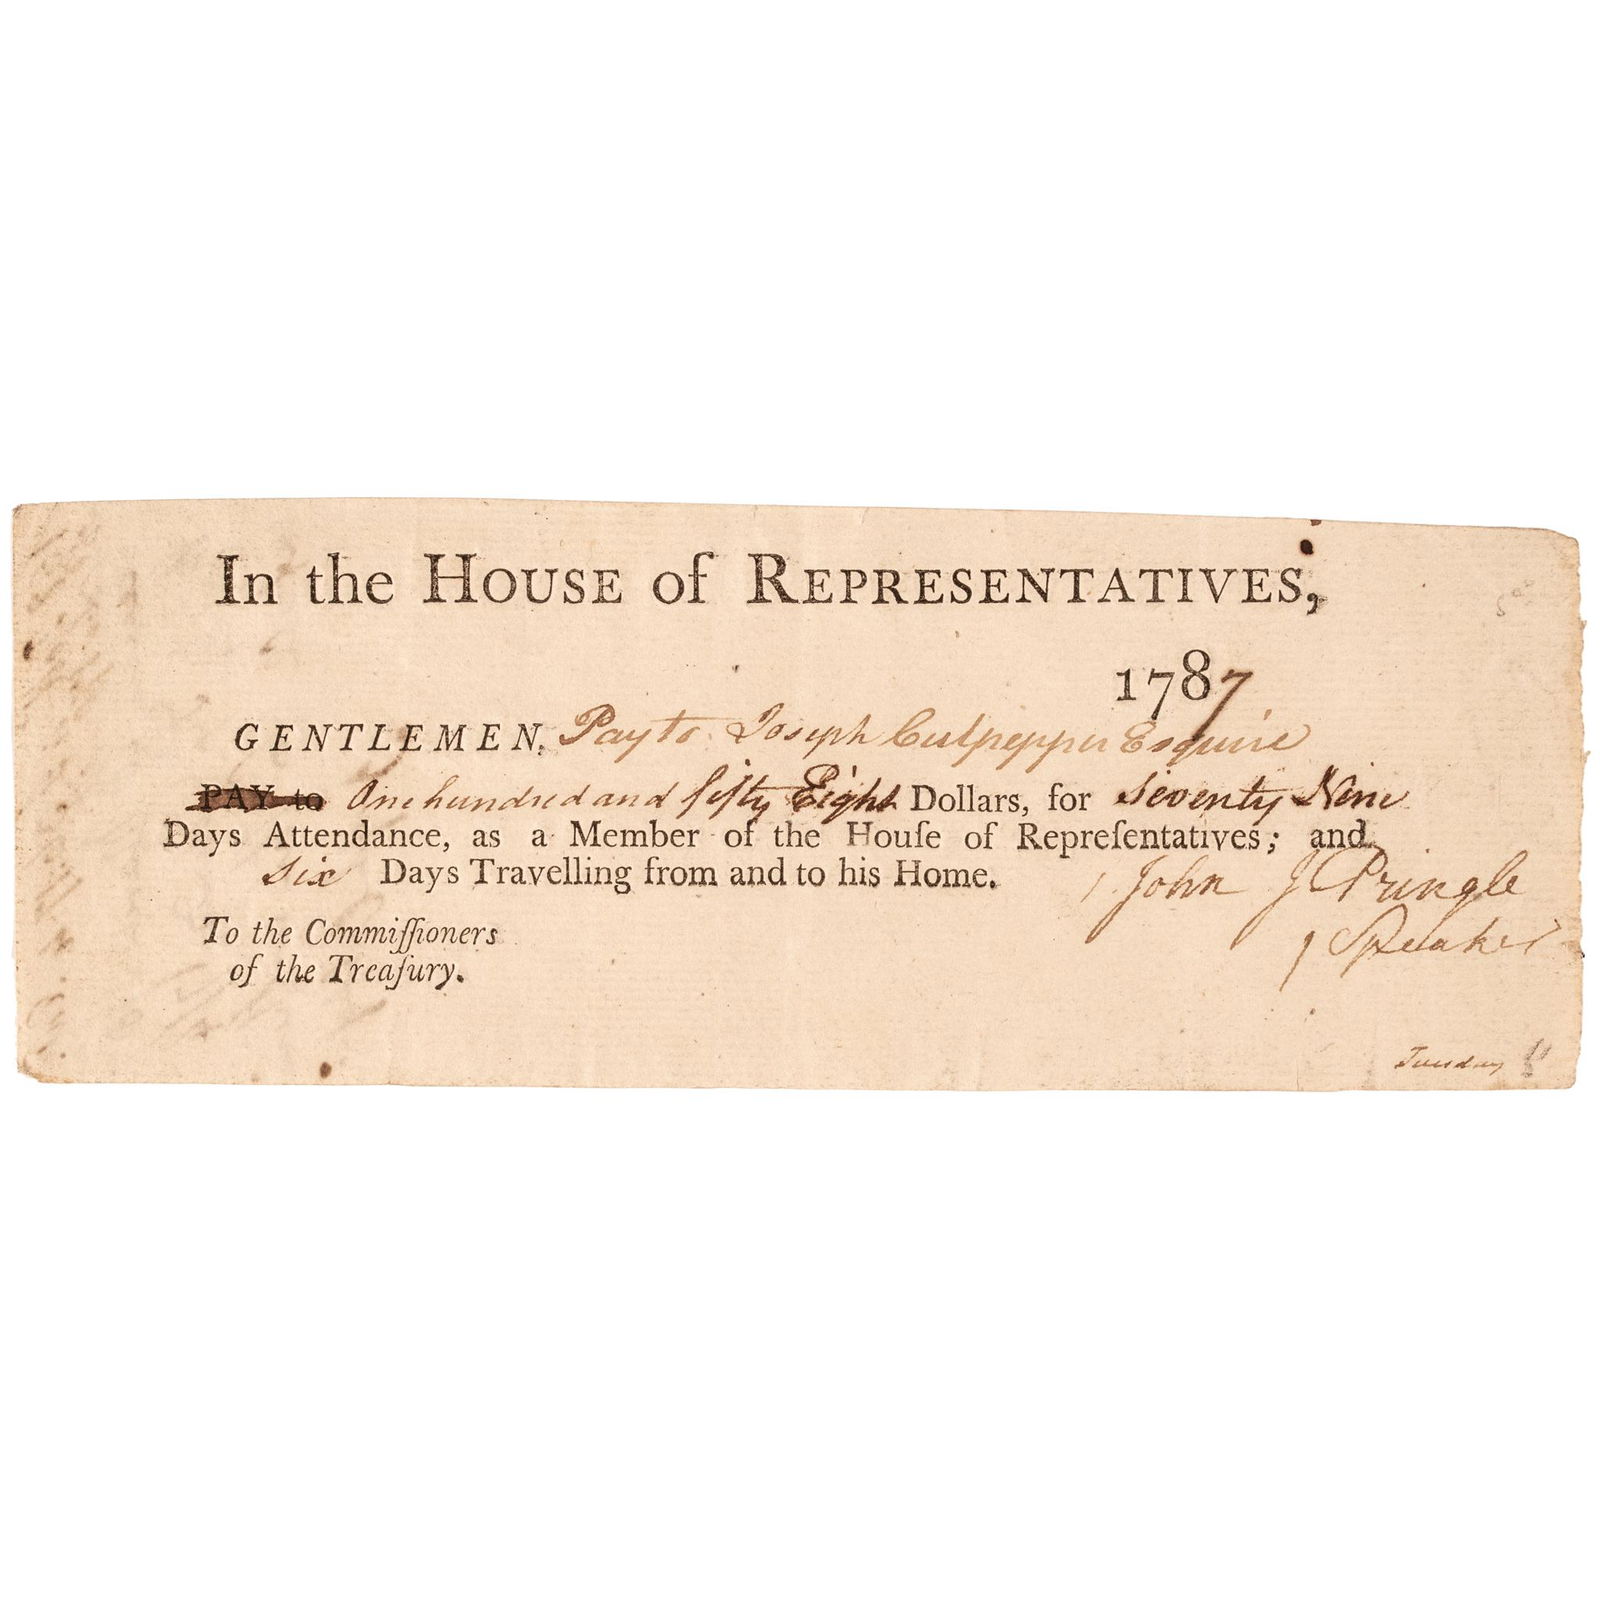 In the HOUSE of REPRESENTATIVES,
1787
GENTLEMEN, Pay to Joseph Culpepper Esquire
PAY to One hundred and fifty Eight Dollars, for Seventy Nine
Days Attendance, as a Member of the Houſe of Repreſentatives; and
Six Days Travelling from and to his Home.
John J Pringle
Speaker
To the Commiſſioners
of the Treaſury.
Tuesday